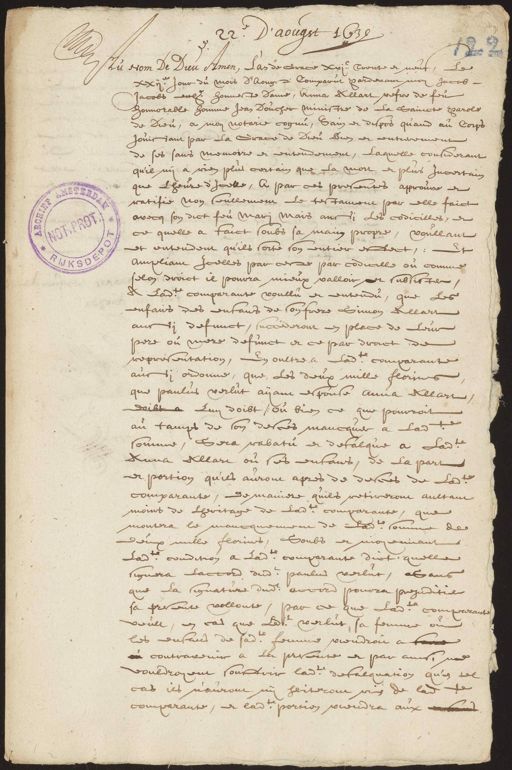 22e D'aougst 1639
122
Au Nom De Dieu Amen, L'an de Grace XVIc Trente et neuf, Le
XXIIe Jour du Mois d'Aougst Comparut pardevant moy Jacob
Jacobs honneste Dame, Anna Allart vefve de feu
honnorable homme Jean Doucher Ministre de La Saincte Parole
de Dieu, a moy notaire cognu, Sain et dispos quand au Corps
Jouissant par La Grace de Dieu bien et entierement
de ses sans memoire et entendement, Laquelle considerant
qu'il n'y a rien plus certain que la mort et plus Incertain
que L'heure d'Icelle, A par ces presentes approuve et
ratifie Non seullement le testament par elle faict
avecq son dict feu Mary Mais aussj Les codicilles, et
ce quelle a faict soubs sa main propre, voullant
et entendent qu'ils sorte son entier effect, Et
Ampliant Icelles par ceste par codicille ou comme
selon droict il pourra mieux valloir et subsister,
A Ladte comparante voullu et entendu, que Les
enfans des enfans de son frere Simon Allart
aussj defunct, succederont en place de Leur
pere ou mere defunct et ce par droict de
representation, En oultre a Ladte comparante
aussj ordonne, que Les deux mille florins,
que paulus verlut ayant espouse Anna Allart,
Luy doibt, ou bien ce que pourroit
au tamps de son deces manquer a Ladte
somme, Sera rabatu et defalque a Ladte
Anna Allart ou ses enfans, de La part
et portion qu'ils auront apres de deces de Ladte
comparante, De maniere qu'ils retireront aultant
moins de L'heritage de Ladte comparante, que
montera le manquement de Ladte somme de
Deux mille florins, Soubs et moyennant
Ladte condition a Ladte comparante dict quelle
signera L'accord dudt paulus verlut, Sans
que La signature dudt accord pourra prejudicier
sa presente vollonte, par ce que Ladte comparante
veult, en cas que Ledt verlut, sa femme ou
les enfans de sadte femme viendroit a
contrevenir a La presente et par ainsi, ne
vouldroyent souffrir Ladte defalquation qu'en tel
cas ils n'auront ny heriteront rien de Ladte
comparante, et Ladte portion viendra aux
ARCHIEF AMSTERDAM
NOT. PROT.
RIJKSDEPOT